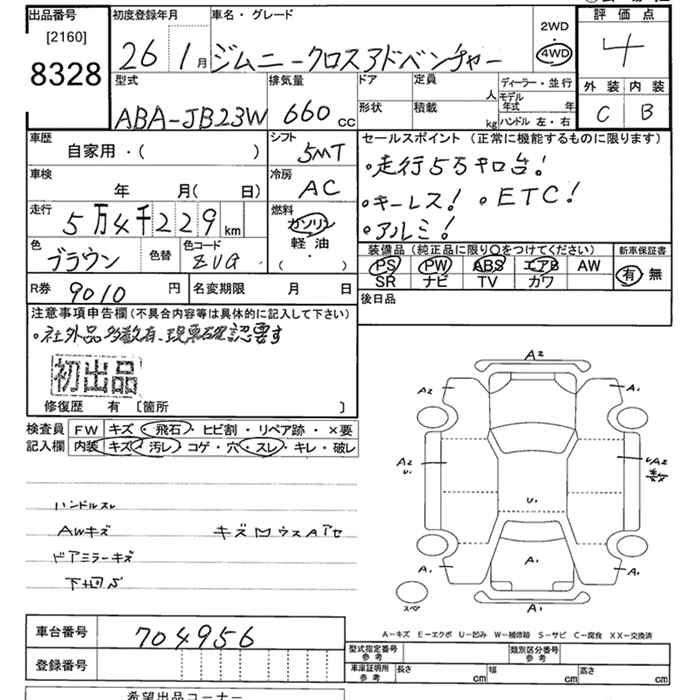 出品番号
[2160]
8328
初度登録年月
26 1月
車名・グレード
ジムニークロスアドベンチャー
2WD
・
4WD
評価点
4
型式
ABA-JB23W
排気量
660cc
ドア
定員
人
形状
積載
kg
ディーラー・並行
モデル年式 年
ハンドル 左・右
外装 内装
C B
車歴
自家用・( )
シフト
5MT
車検
年 月( 日)
冷房
AC
走行
5万4千229km
燃料
ガソリン
軽油
・( )
色
ブラウン
色替
色コード
ZUG
R券
9010円
名変期限 月 日
セールスポイント(正常に機能するものに限ります)
・走行5万キロ台!
・キーレス! ・ETC!
・アルミ!
装備品(純正品に限り○をつけてください)
PS PW ABS エアB AW
SR ナビ TV カワ
新車保証書
有・無
後日品
注意事項申告欄(不具合内容等は具体的に記入して下さい)
・社外品多数有、現車確認要す
初出品
修復歴 有 [箇所 ]
検査員記入欄
FW キズ・飛石・ヒビ割・リペア跡・×要
内装 キズ・汚レ・コゲ・穴・スレ・キレ・破レ
ハンドルスレ
AWキズ
ドアミラーキズ
下廻サ
A2
A2 A1
A2
U1
A2
U1
A1
A1 A1
A1
スペア
A-キズ E-エクボ U-凹み W-補修跡 S-サビ C-腐食 XX-交換済
車台番号
704956
登録番号
型式指定番号
参考
類別区分番号
参考
車庫証明用
参考
長さ cm
幅 cm
高さ cm
希望出品コーナー